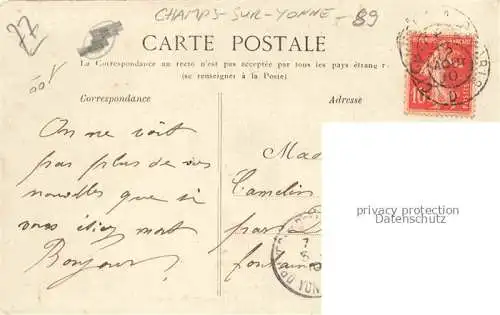 77
CHAMPS-SUR-YONNE - 89
CARTE POSTALE
La Correspondance au recto n'est pas acceptée par tous les pays étranger
(se renseigner à la Poste)
Correspondance
Adresse
On ne voit
pas plus de vos
nouvelles que si
vous étiez mort
Bonjour
Mad
Camelin
par
fontaine
privacy protection
Datenschutz